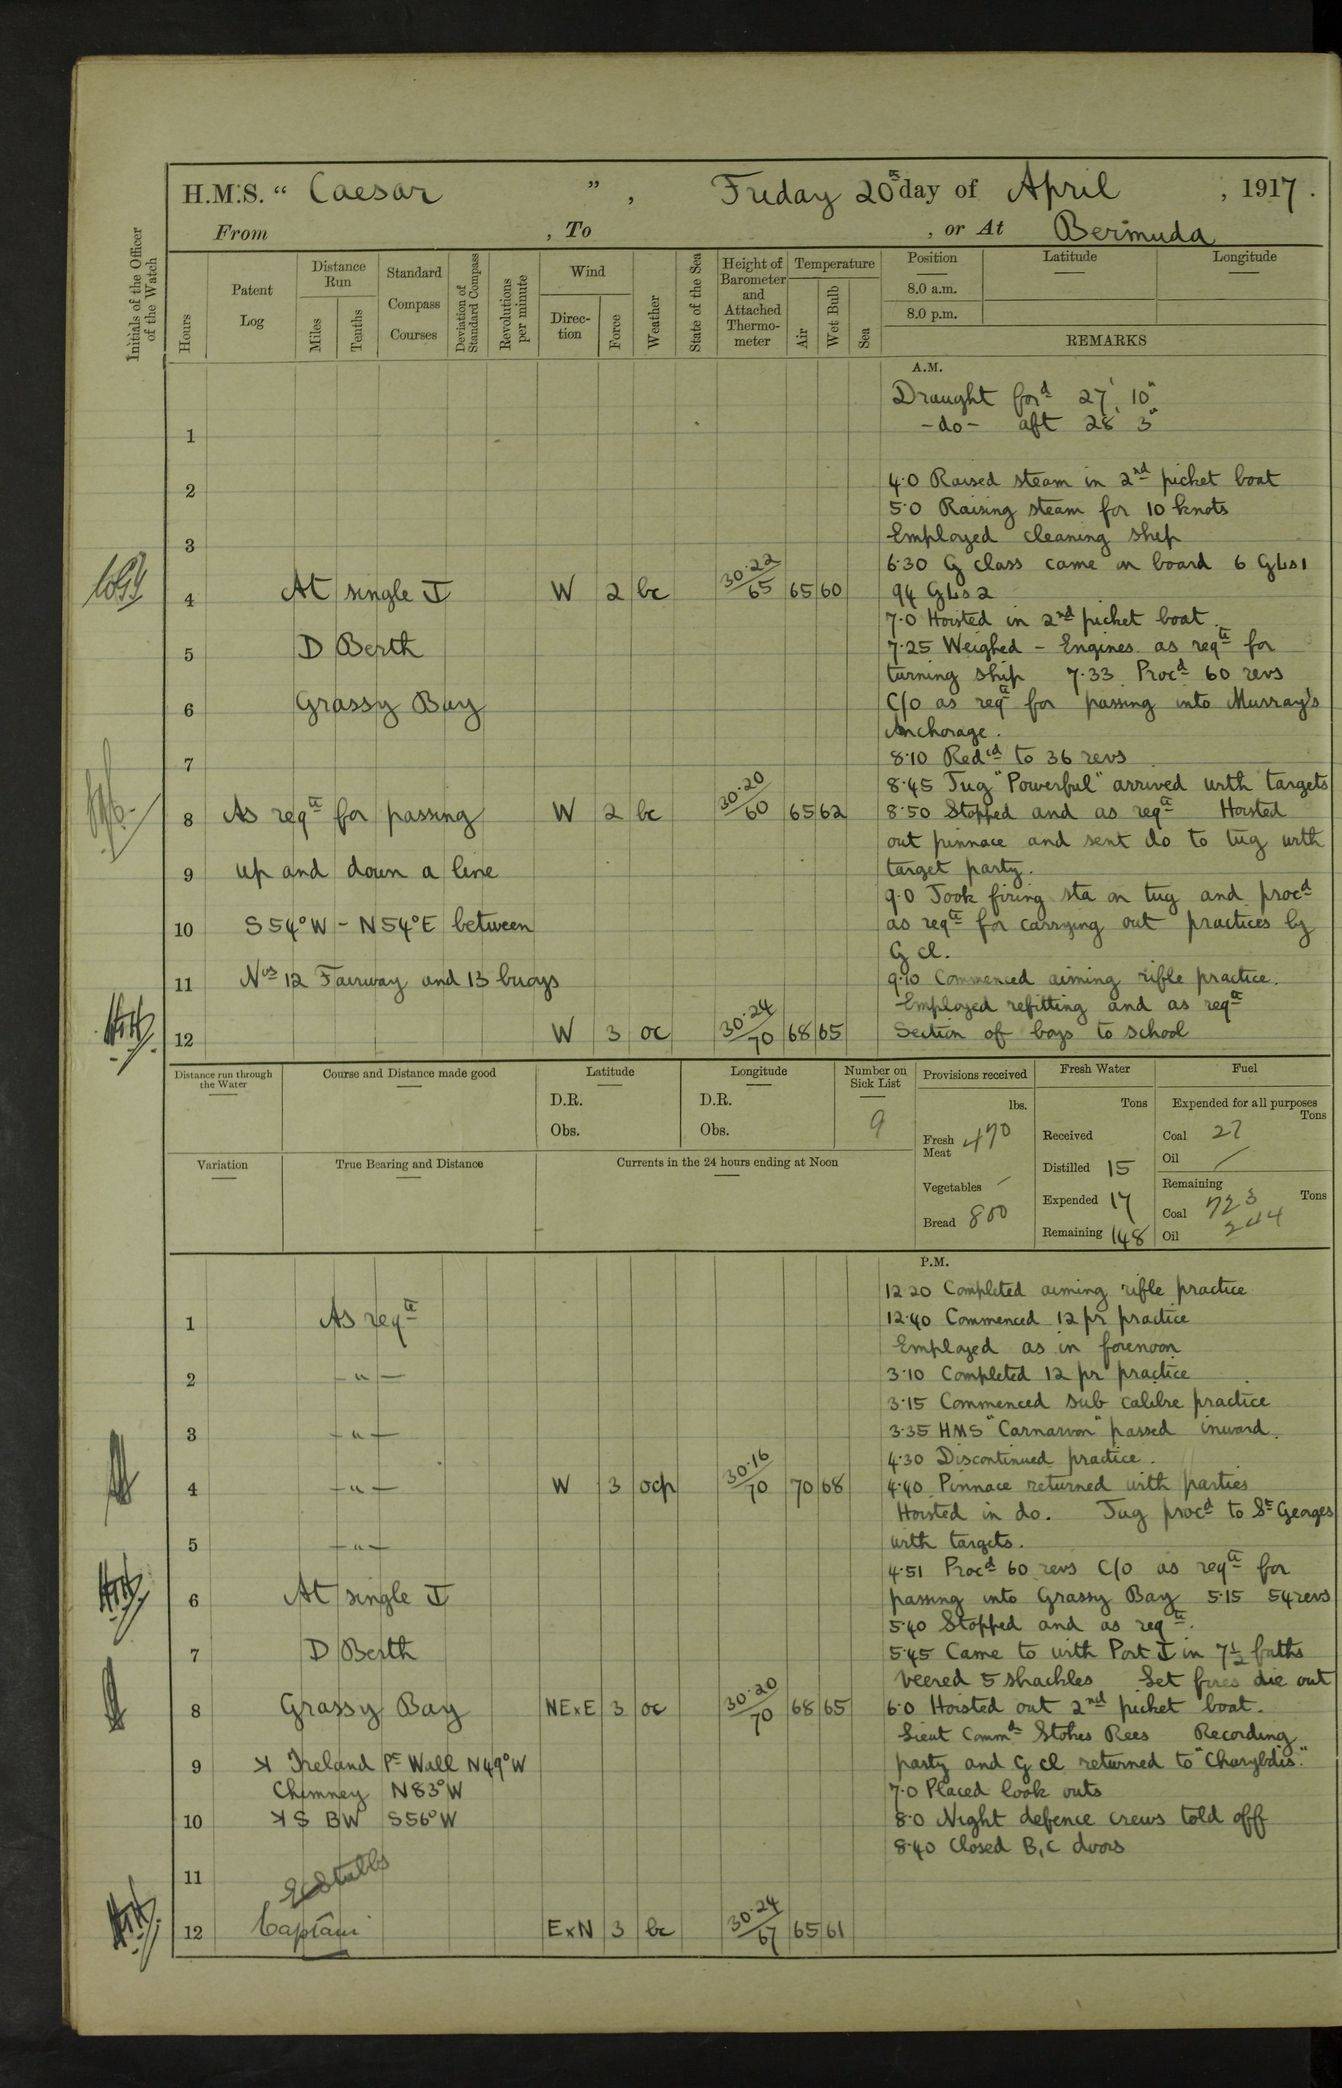 H.M.S. " Caesar ", Friday 20th day of April, 1917.
From , To , or At Bermuda
Initials of the Officer of the Watch
Hours
Patent Log
Distance Run
Miles
Tenths
Standard Compass Courses
Deviation of Standard Compass
Revolutions per minute
Wind
Direction
Force
Weather
State of the Sea
Height of Barometer and Attached Thermometer
Temperature
Air
Wet Bulb
Sea
Position
8.0 a.m.
8.0 p.m.
Latitude
Longitude
REMARKS
A.M.
Draught ford 27' 10"
-do- aft 28' 3"
1
2
4.0 Raised steam in 2nd picket boat
5.0 Raising steam for 10 knots
Employed cleaning ship
3
6.30 G class came on board 6 GLs 1
4 At single ⚓ W 2 bc 30.22/65 65 60 94 GLs 2
7.0 Hoisted in 2nd picket boat.
5 D Berth 7.25 Weighed - Engines as reqte for
turning ship 7.33 Procd 60 revs
6 Grassy Bay C/o as reqte for passing into Murray's
Anchorage.
7 8.10 Redcd to 36 revs
8.45 Tug "Powerful" arrived with targets
8 As reqte for passing W 2 bc 30.20/60 65 62 8.50 Stopped and as reqte Hoisted
out pinnace and sent do to tug with
9 up and down a line target party.
9.0 Took firing sta on tug and procd
10 S54°W - N54°E between as reqte for carrying out practices by
G cl.
11 Nos 12 Fairway and 13 buoys 9.10 Commenced aiming rifle practice.
Employed refitting and as reqte
12 W 3 oc 30.24/70 68 65 Section of boys to school
Distance run through the Water
Course and Distance made good
Latitude
D.R.
Obs.
Longitude
D.R.
Obs.
Number on Sick List
9
Provisions received
lbs.
Fresh Meat 470
Vegetables /
Bread 800
Fresh Water
Tons
Received
Distilled 15
Expended 17
Remaining 148
Fuel
Expended for all purposes
Tons
Coal 27
Oil /
Remaining
Tons
Coal 723
Oil 244
Variation
True Bearing and Distance
Currents in the 24 hours ending at Noon
P.M.
12.20 Completed aiming rifle practice
1 As reqte 12.40 Commenced 12 pr practice
Employed as in forenoon
2 - " - 3.10 Completed 12 pr practice
3.15 Commenced sub calibre practice
3 - " - 3.35 HMS "Carnarvon" passed inward.
4.30 Discontinued practice.
4 - " - W 3 ocp 30.16/70 70 68 4.40 Pinnace returned with parties
Hoisted in do. Tug procd to St Georges
5 - " - with targets.
4.51 Procd 60 revs C/o as reqte for
6 At single ⚓ passing into Grassy Bay 5.15 54 revs
5.40 Stopped and as reqte.
7 D Berth 5.45 Came to with Port ⚓ in 7½ faths
veered 5 shackles Let fires die out
8 Grassy Bay NExE 3 oc 30.20/70 68 65 6.0 Hoisted out 2nd picket boat.
Lieut Commdr Stokes Rees Recording
9 Ireland Pt Wall N49°W party and G cl returned to "Charybdis."
Chimney N83°W 7.0 Placed look outs
10 S BW S56°W 8.0 Night defence crews told off
8.40 Closed B, C doors
11
12 Captain ExN 3 bc 30.24/67 65 61